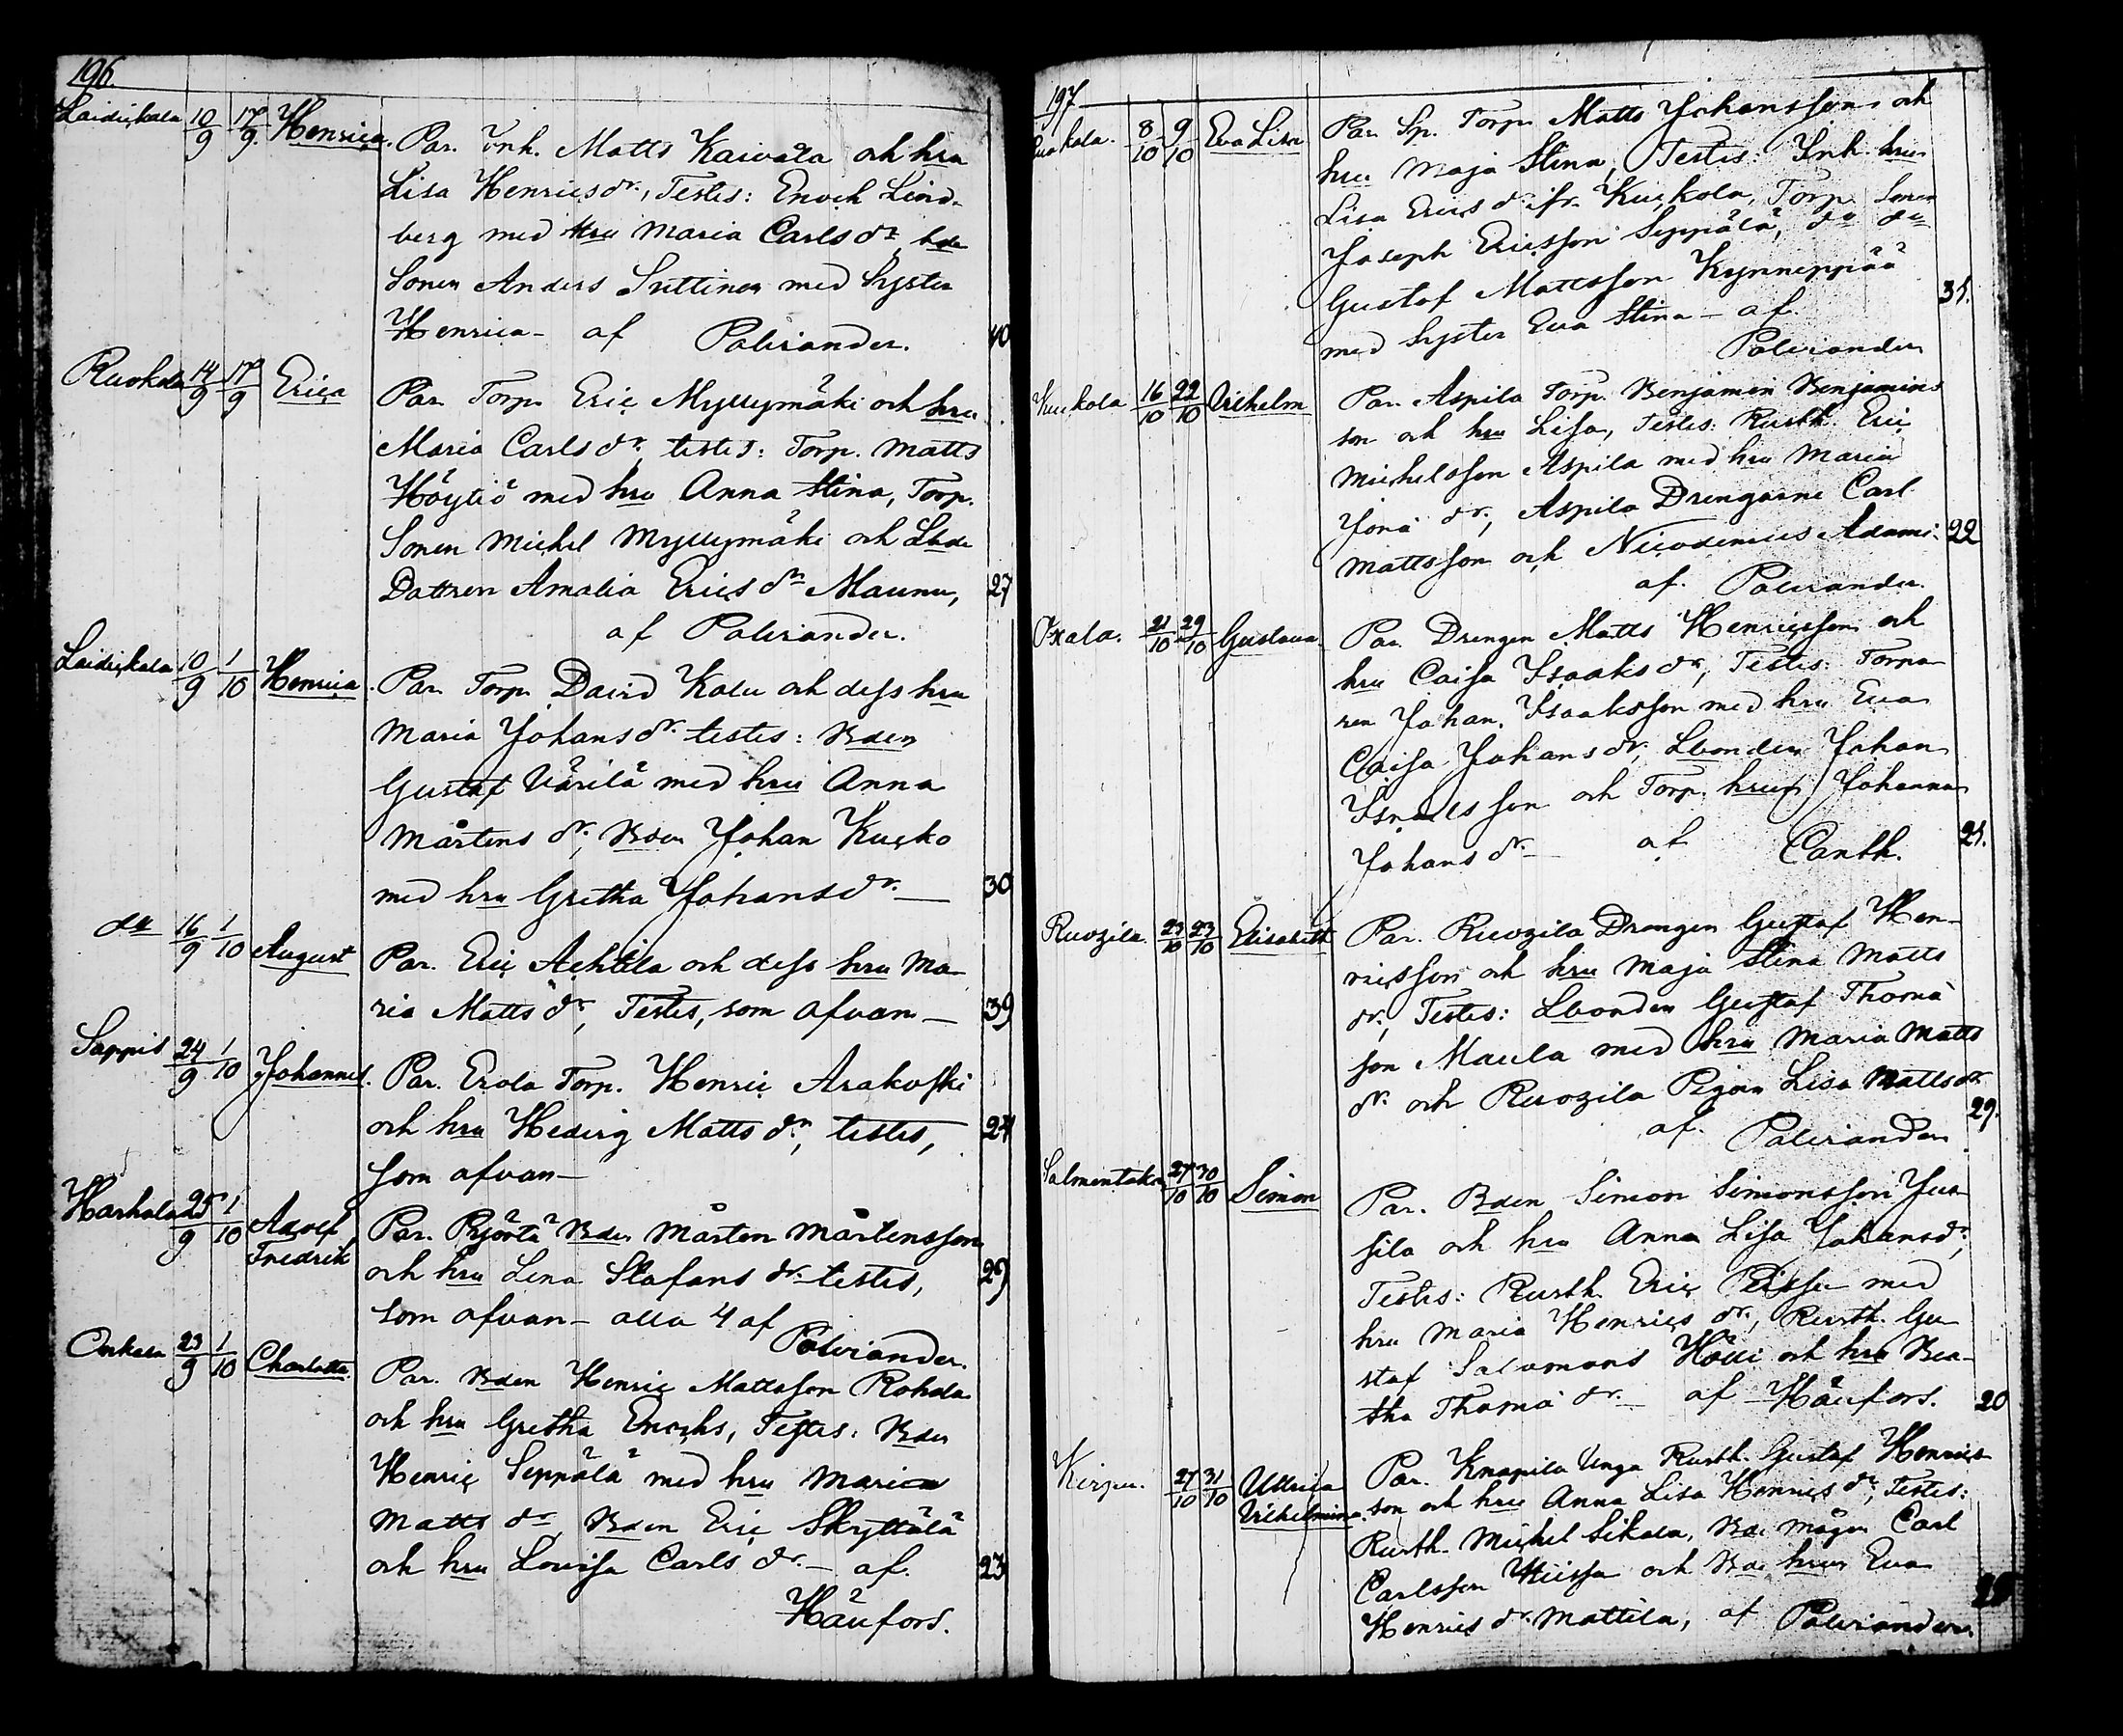 196.
Laidikala 10/9 17/9 Henrica. Par. Inh. Matts Kaivola och hru
Lisa Henricsdr, Testes: Enoch Lind-
berg med hru Maria Carlsdr bde
Sonen Anders Suttinen med Syster
Henrica - af Palviander. 40
Ruokola 14/9 17/9 Erica Par. Torp. Eric Myllymäki och hru
Maria Carlsdr, testes: Torp. Matts
Höytiö med hru Anna Stina, Torp.
Sonen Michel Myllymäki och Lbde
Dottren Amalia Ericsdr Maunu, 27
af Palviander.
Laidikala 10/9 1/10 Henrica. Par. Torp. David Kalu och dess hru
Maria Johansdr. testes: Bden
Gustaf Värilä med hru Anna
Mårtensdr, Bden Johan Kucko
med hru Gretha Johansdr. — 30
do 16/9 1/10 August Par. Eric Achtila och dess hru Ma-
ria Mattsdr, Testes, som ofvan — 39
Sappis 24/9 1/10 Johannes. Par. Erola Torp. Henric Arakoski
och hru Hedvig Mattsdr, testes, 24
som ofvan —
Harhala 25/9 1/10 Adolf Par. Pijörtä Bden Mårten Mårtensson
Fredrik och hru Lena Stafansdr. testes, 29
som ofvan — alla 4 af
Palviander.
Onkala 23/9 1/10 Charlotta. Par. Bden Henric Mattsson Rohola
och hru Gretha Enochs, Testes: Bden
Henric Seppälä med hru Maria
Mattsdr Bden Eric Skyttälä
och hru Lovisa Carlsdr. — af 23
Häufors.
197
kola. 8/10 9/10 Eva Lisa Par. Sp. Torp. Matts Johansson och
hru Maja Stina, Testes: Inh. hru
Lisa Ericsdr ifr. Kuckola, Torp. Sonen
Joseph Ericsson Seppälä, do do
Gustaf Mattsson Kynneppää 35.
med Syster Eva Stina — af
Palviander
Kuckola 16/10 22/10 Vilhelm Par. Aspila Torp. Benjamin Benjamins
son och hru Lisa, Testes: Rusth. Eric
Michelsson Aspila med hru Maria
Jona dr, Aspila Drengarne Carl
Mattsson och Nicodemus Adami. 22
af Palviander.
Oxala. 21/10 29/10 Gustava. Par. Drengen Matts Henricsson och
hru Caisa Isaaksdr, Testes: Torpa-
ren Johan Isaaksson med hru Eva
Caisa Johansdr, Lbonden Johan
Israelsson och Torp. hrun Johanna
Johansdr. — af Canth. 25.
Ruozila. 23/10 23/10 Elisabeth Par. Ruozila Drengen Gustaf Hen-
ricsson och hru Maja Stina Matts
dr, Testes: Lbonden Gustaf Thomä
son Maula med hru Maria Matts
dr. och Ruozila Pigan Lisa Mattsdr
af Palviander 29.
Salmentaka 27/10 30/10 Simon Par. Bden Simon Simonsson Jus-
sila och hru Anna Lisa Johansdr,
Testes: Rusth. Eric Peissu med
hru Maria Henricsdr, Rusth. Gu-
staf Salomons Hölli och hru Bea-
tha Thomä dr. — af Häufors. 20
Kirpu. 27/10 31/10 Ullrica Par. Knapila Unga Rusth. Gustaf Henrics-
Vilhelmina. son och hru Anna Lisa Henricsdr, Testes:
Rusth. Michel Sikala, Bde mågen Carl
Carlsson och Bde hrun Eva
Henricsdr. Mattila, af Palviander.